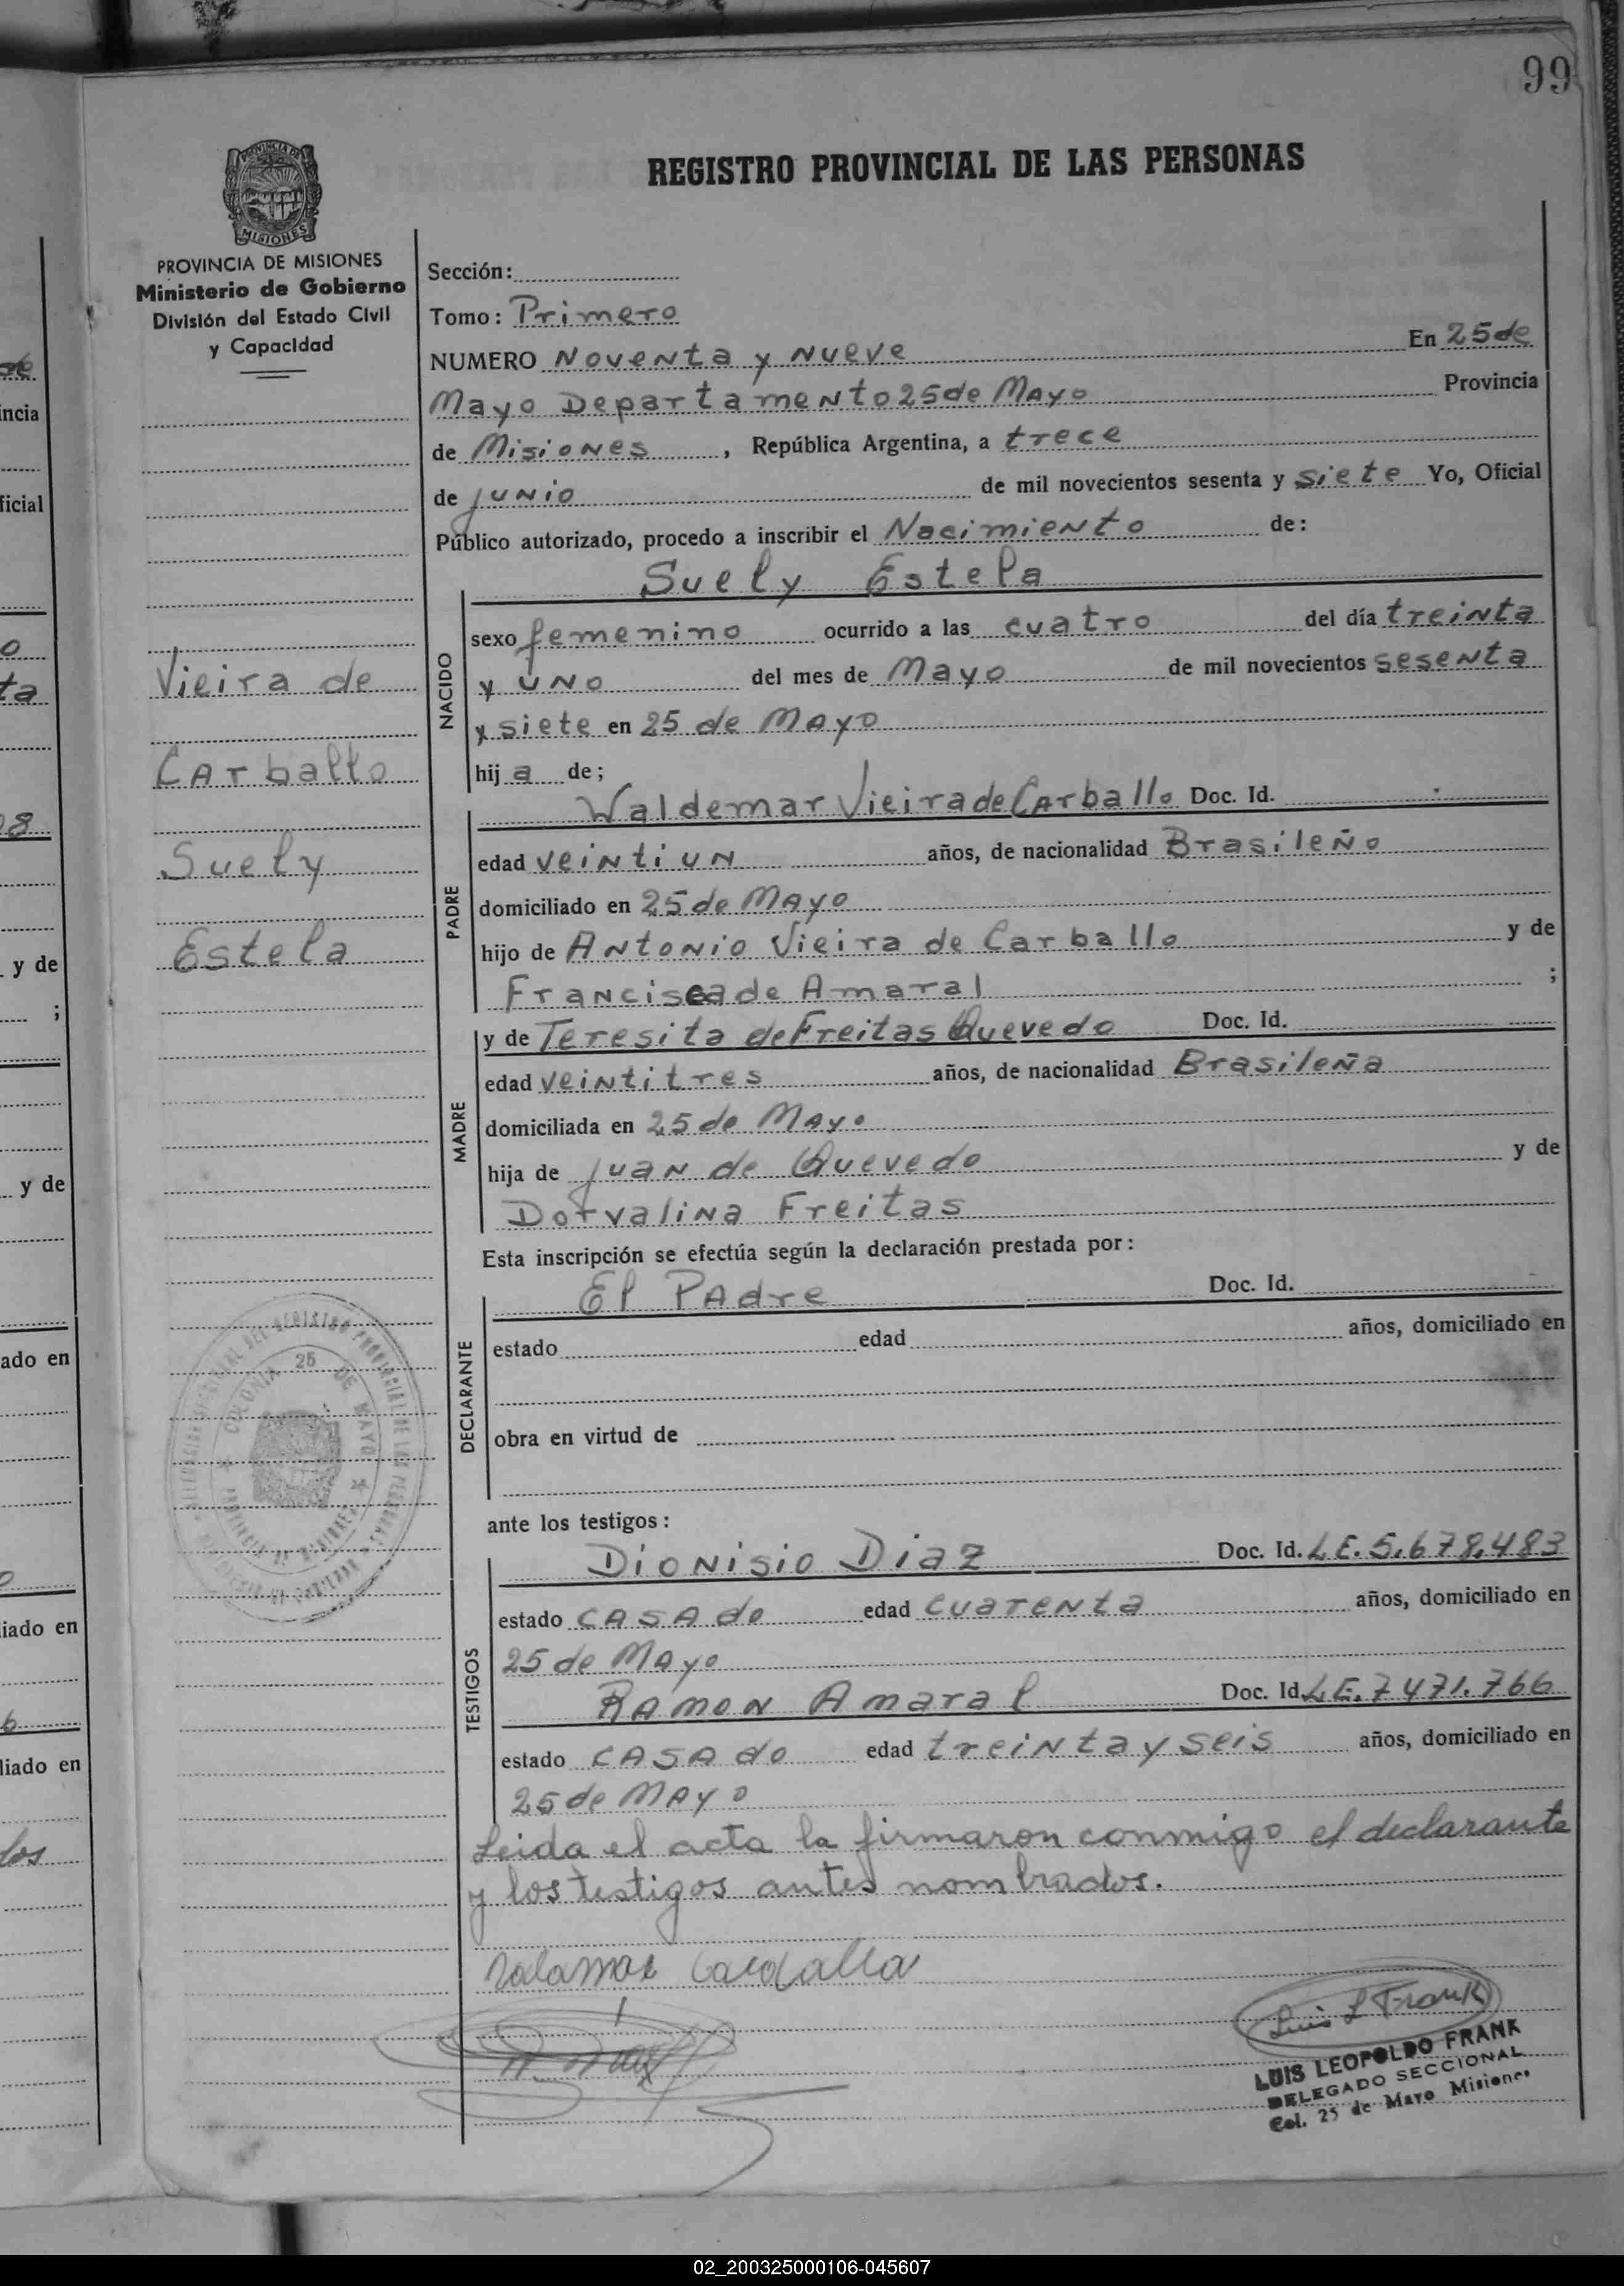 99
REGISTRO PROVINCIAL DE LAS PERSONAS
PROVINCIA DE
MISIONES
PROVINCIA DE MISIONES
Ministerio de Gobierno
División del Estado Civil
y Capacidad
Sección:
Tomo: Primero
NUMERO Noventa y nueve En 25 de
Mayo Departamento 25 de Mayo Provincia
de Misiones, República Argentina, a trece
de junio de mil novecientos sesenta y siete Yo, Oficial
Público autorizado, procedo a inscribir el Nacimiento de:
Suely Estela
NACIDO
sexo femenino ocurrido a las cuatro del día treinta
y uno del mes de Mayo de mil novecientos sesenta
y siete en 25 de Mayo
hij a de;
Vieira de
Carballo
Suely
Estela
PADRE
Waldemar Vieira de Carballo Doc. Id.
edad veintiun años, de nacionalidad Brasileño
domiciliado en 25 de Mayo
hijo de Antonio Vieira de Carballo y de
Francisca de Amaral ;
MADRE
y de Teresita de Freitas Quevedo Doc. Id.
edad veintitres años, de nacionalidad Brasileña
domiciliada en 25 de Mayo
hija de Juan de Quevedo y de
Dorvalina Freitas
Esta inscripción se efectúa según la declaración prestada por:
DECLARANTE
El Padre Doc. Id.
estado edad años, domiciliado en
obra en virtud de
COLONIA 25 DE MAYO
PROVINCIA DE MISIONES
ante los testigos:
TESTIGOS
Dionisio Diaz Doc. Id. L.E. 5.678.483
estado casado edad cuarenta años, domiciliado en
25 de Mayo
Ramon Amaral Doc. Id. L.E. 7471.766
estado casado edad treinta y seis años, domiciliado en
25 de Mayo
Leida el acta la firmaron conmigo el declarante
y los testigos antes nombrados.
Luis L Frank
LUIS LEOPOLDO FRANK
DELEGADO SECCIONAL
Col. 25 de Mayo Misiones
de
incia
ficial
o
ta
8
y de
;
y de
ado en
o
iado en
6
liado en
los
02_200325000106-045607